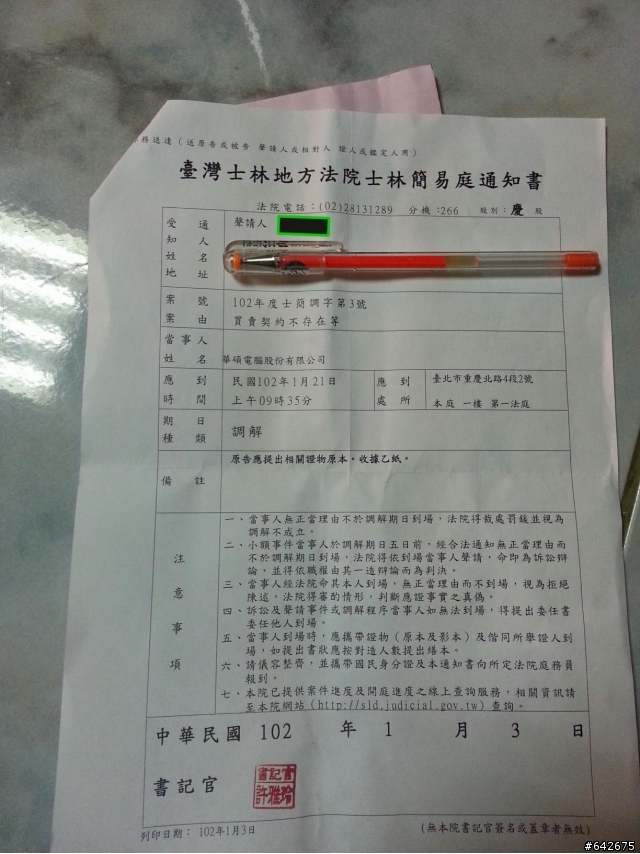 務送達(送原告或被告 聲請人或相對人 證人或鑑定人用)
臺灣士林地方法院士林簡易庭通知書
法院電話:(02)28131289 分機:266 股別:慶 股
受通知人姓名地址
聲請人
案號 102年度士簡調字第3號
案由 買賣契約不存在等
當事人姓名 華碩電腦股份有限公司
應到時間 民國102年1月21日
上午09時35分
應到處所 臺北市重慶北路4段2號
本庭 一樓 第一法庭
期日種類 調解
備註 原告應提出相關證物原本。收據乙紙。
注意事項
一、當事人無正當理由不於調解期日到場,法院得裁處罰鍰並視為
調解不成立。
二、小額事件當事人於調解期日五日前,經合法通知無正當理由而
不於調解期日到場,法院得依到場當事人聲請,命即為訴訟辯
論,並得依職權由其一造辯論而為判決。
三、當事人經法院命其本人到場,無正當理由而不到場,視為拒絕
陳述,法院得審酌情形,判斷應證事實之真偽。
四、訴訟及聲請事件或調解程序當事人如無法到場,得提出委任書
委任他人到場。
五、當事人到場時,應攜帶證物(原本及影本)及偕同所舉證人到
場,如提出書狀應按對造人數提出繕本。
六、請儀容整齊,並攜帶國民身分證及本通知書向所定法院庭務員
報到。
七、本院已提供案件進度及開庭進度之線上查詢服務,相關資訊請
至本院網站(http://sld.judicial.gov.tw)查詢。
中華民國 102 年 1 月 3 日
書記官
書記官
許雅玲
列印日期: 102年1月3日
(無本院書記官簽名或蓋章者無效)
#642675